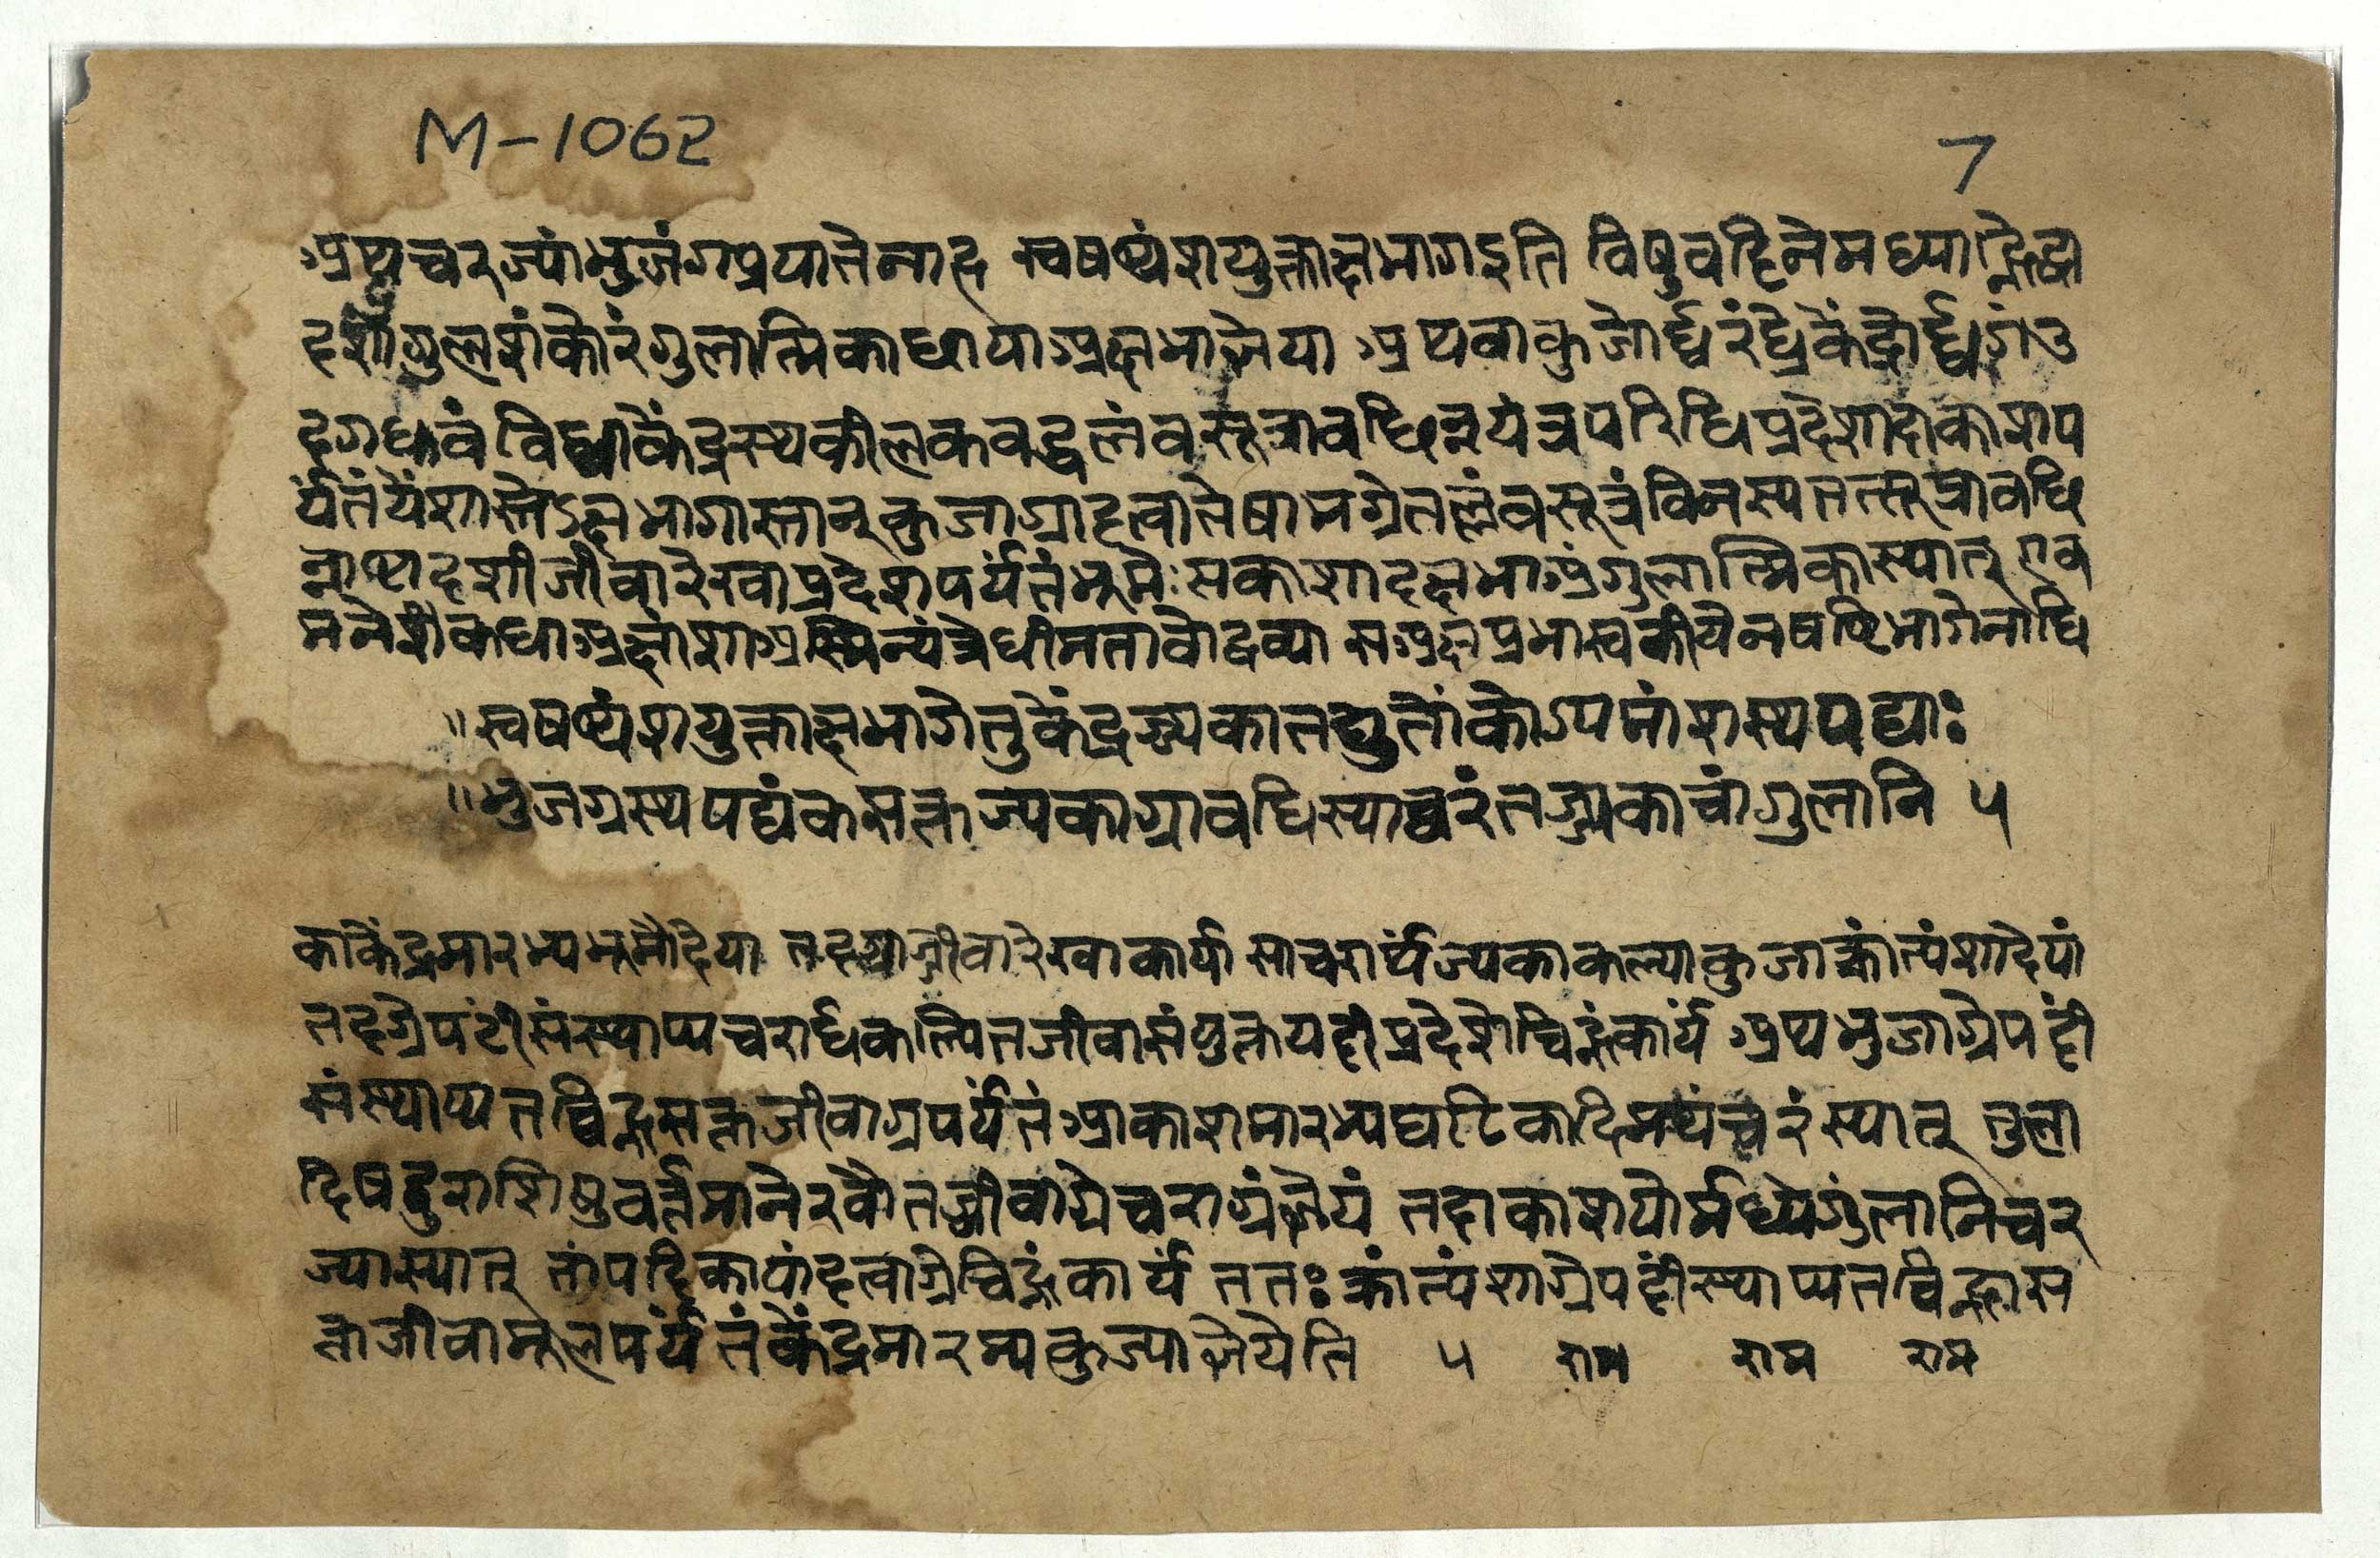 M-1062
7
अथ चरज्यां भुजंगप्रयातेनाह स्वषष्ट्यंशयुक्ताक्षभागइति विषुवद्दिनेमध्याह्नेद्वा
दशांगुलशंकोरंगुलात्मिकाछायाअक्षभाज्ञेया अथवाकुजोर्द्ध्वरंध्रेकेंद्रोर्द्ध्वगंउ
दग्ध्रुवं विध्वाकेंद्रस्थकीलकवद्धलंबसूत्रावधिन्नयंत्रपरिधिप्रदेशादाकाशप
र्यंतंयेंशास्तेऽक्षभागास्तान्कुजाग्राद्दत्वातेषामग्रेतल्लंबसूत्रंविनस्यतत्सूत्रावधि
न्नाष्टादशीजीवारेखाप्रदेशपर्यंतंभूमेःसकाशादक्षभाअंगुलात्मिकास्यात् एव
मनेशैकधाअक्षांशाअस्मिन्यंत्रेधीमतावोद्धव्या सअक्षप्रभास्वकीयेनषष्टिभागेनाधि
"स्वषष्ट्यंशयुक्ताक्षभागेतुकेंद्रज्यकातद्युतोंकोऽपमांशस्थपद्याः
"भुजग्रस्थपद्यंकसक्तज्यकाग्रावधिस्याच्चरंतज्यकाचांगुलानि ५
काकेंद्रमारभ्यभूमौदेया तदृश्याजीवारेखाकार्या साचरार्थज्यकाकल्प्याकुजाक्रांत्यंशादेयां
तदग्रेपटीसंस्थाप्यचरार्धकल्पितजीवासंयुक्तयट्टीप्रदेशेचिह्नंकार्यं अथभुजाग्रेपट्टीं
संस्थाप्यतच्चिह्नसक्तजीवाग्रपर्यंतंआकाशमारभ्यघटिकादिमयंचरंस्यात् तुला
दिषट्कुराशिषुवर्त्तमानेरवौतज्जीवाग्रेचराग्रंज्ञेयं तदाकाशयोर्मध्येगुंलानिचर
ज्यास्यात् तांपट्टिकायांदत्वाग्रेचिह्नंकार्यं ततःक्रांत्यंशाग्रेपट्टींस्थाप्यतच्चिह्नास
क्तजीवामूलपर्यंतंकेंद्रमारभ्यकुज्याज्ञेयेति ५ राम राम राम